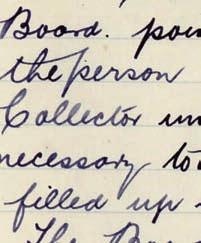 Board. poin
the person
Collector un
necessary to
filled up -
The Boa